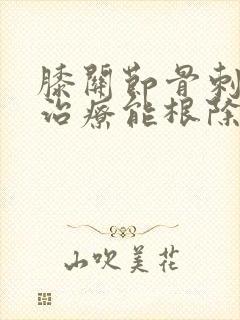 膝關節骨刺
治療能根除
山吹美花